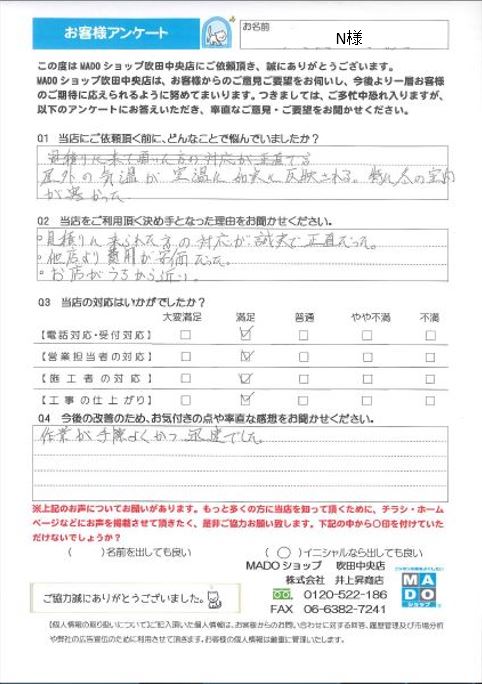 お客様アンケート
お名前
N様
この度はMADOショップ吹田中央店にご依頼頂き、誠にありがとうございます。
MADOショップ吹田中央店は、お客様からのご意見ご要望をお伺いし、今後より一層お客様
のご期待に応えられるように努めてまいります。つきましては、ご多忙中恐れ入りますが、
以下のアンケートにお答えいただき、率直なご意見・ご要望をお聞かせください。
Q1 当店にご依頼頂く前に、どんなことで悩んでいましたか？
見積りに来て頂いた方の対応が正直で
屋外の気温が室温に如実に反映される。特に冬の室内
が寒かった
Q2 当店をご利用頂く決め手となった理由をお聞かせください。
・見積りに来られた方の対応が誠実で正直だった。
・他店より費用が安価だった。
・お店がうちから近い。
Q3 当店の対応はいかがでしたか？
大変満足 満足 普通 やや不満 不満
【電話対応・受付対応】
【営業担当者の対応】
【施工者の対応】
【工事の仕上がり】
Q4 今後の改善のため、お気付きの点や率直な感想をお聞かせください。
作業が手際よくかつ迅速でした。
※上記のお声についてお願いがあります。もっと多くの方に当店を知って頂くために、チラシ・ホーム
ページなどにお声を掲載させて頂きたく、是非ご協力お願い致します。下記の中から〇印を付けていた
だけないでしょうか？
（ ）名前を出しても良い （〇）イニシャルなら出しても良い
MADOショップ 吹田中央店
株式会社 井上昇商店
0120-522-186
FAX 06-6382-7241
MADO
ショップ
ご協力誠にありがとうございました。
【個人情報の取り扱いについて】ご記入頂いた個人情報は、お客様からのお問い合わせに対する回答、履歴管理及び市場分析
や弊社の広告宣伝のために利用させて頂きます。お客様の個人情報は厳重に管理いたします。